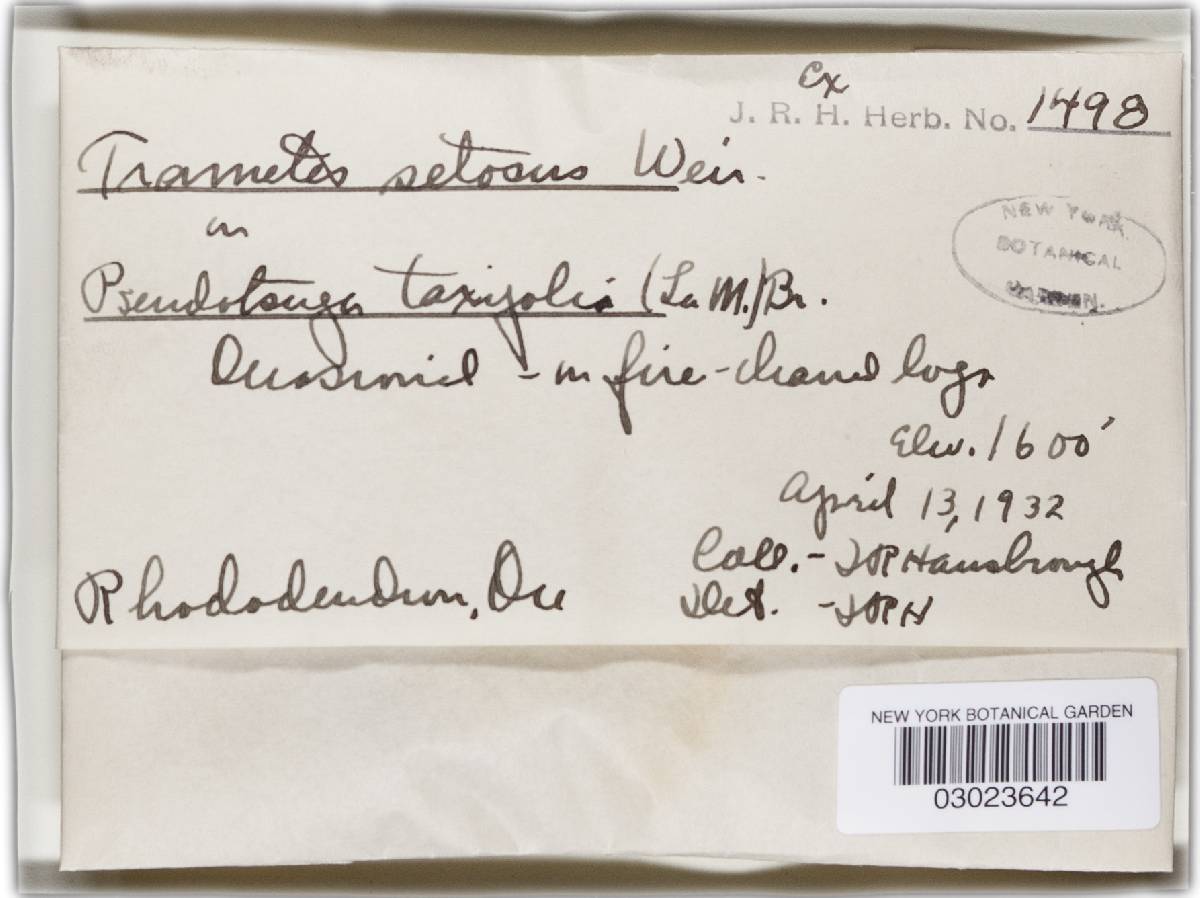 Ex
J. R. H. Herb. No. 1498
Trametes setosus Weir.
NEW YORK
BOTANICAL
GARDEN.
on
Pseudotsuga taxifolia (LaM.) Br.
Occasional - on fire-charred logs
Elev. 1600'
April 13, 1932
Coll. - JR Hansbrough
Rhododendron, Ore
Det. - JRH
NEW YORK BOTANICAL GARDEN
03023642